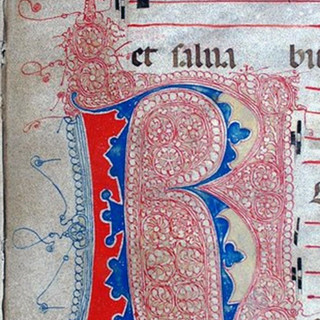 et salua bit